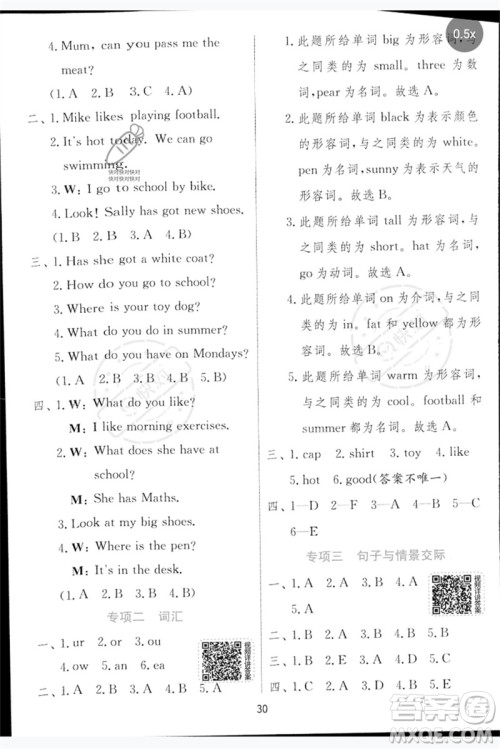 0.5x
4. Mum, can you pass me the
meat?
(1. A  2. B  3. A  4. B)
二、1. Mike likes playing football.
2. It's hot today. We can go
swimming.
3. W: I go to school by bike.
4. Look! Sally has got new shoes.
(1. A  2. B  3. B  4. A)
三、1. Has she got a white coat?
2. How do you go to school?
3. Where is your toy dog?
4. What do you do in summer?
5. What do you have on Mondays?
(1. A  2. B  3. A  4. B  5. B)
四、1. W: What do you like?
M: I like morning exercises.
2. W: What does she have at
school?
M: She has Maths.
3. Look at my big shoes.
4. W: Where is the pen?
M: It's in the desk.
(1. B  2. B  3. A  4. A)
专项二 词汇
一、1. ur  2. or  3. ou
4. ow  5. an  6. ea
二、1. A  2. B  3. B  4. B  5. A
1. 此题所给单词 big 为形容词,与
之同类的为 small。three 为数
词,pear 为名词。故选 A。
2. 此题所给单词 black 为表示颜色
的形容词,与之同类的为 white。
pen 为名词,sunny 为表示天气的
形容词。故选 B。
3. 此题所给单词 tall 为形容词,与
之同类的为 short。hat 为名词,
go 为动词。故选 A。
4. 此题所给单词 on 为介词,与之同
类的为 in。fat 和 yellow 都为形
容词。故选 B。
5. 此题所给单词 warm 为形容词,
与之同类的为 cool。football 和
summer 都为名词。故选 A。
三、1. cap  2. shirt  3. toy  4. like
5. hot  6. good(答案不唯一)
四、1—D  2—F  3—A  4—B  5—C
6—E
专项三 句子与情景交际
一、1. A  2. A  3. A  4. B
5. A
二、1. B  2. A  3. B  4. A
5. B
三、1. B  2. A  3. A  4. B  5. A
视频详讲答案
30